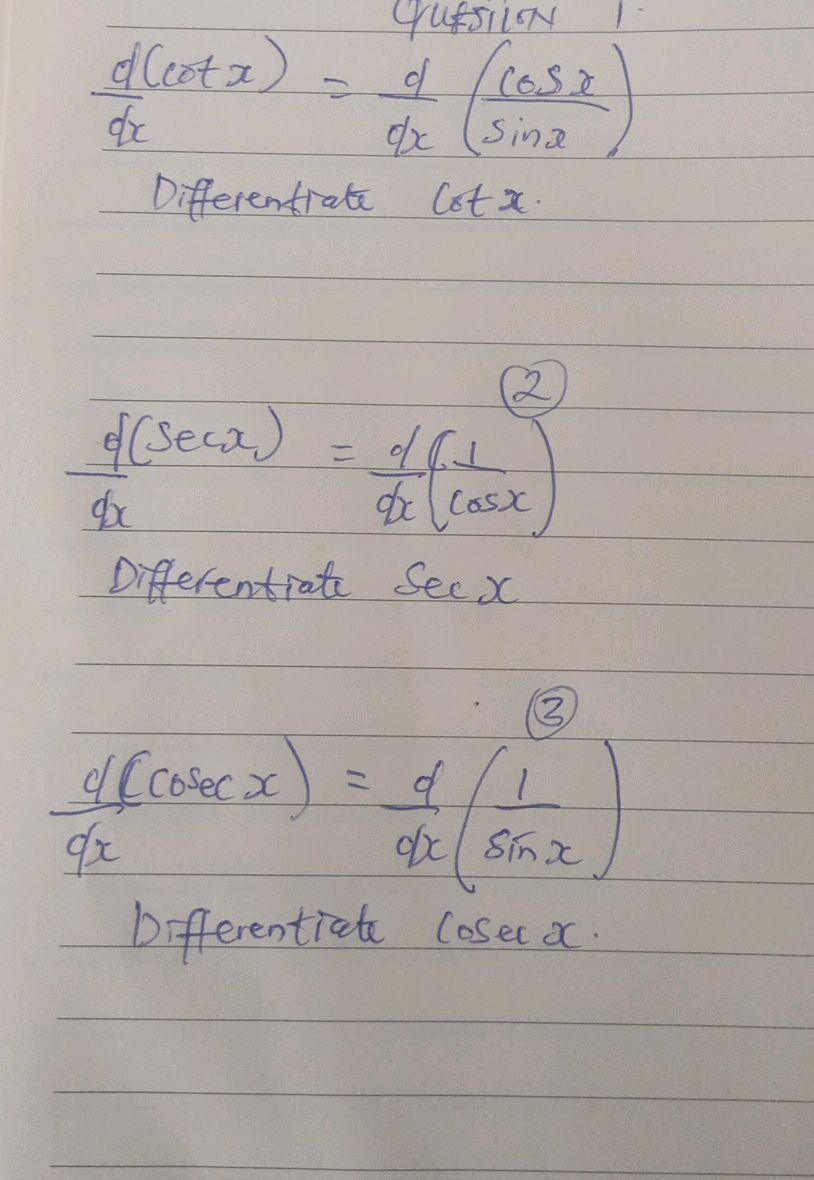 QUESTION 1.
d(cot x)/dx = d/dx (cos x/sin x)
Differentiate Cot x.
2
d(sec x)/dx = d/dx (1/cos x)
Differentiate Sec x
3
d(cosec x)/dx = d/dx (1/sin x)
Differentiate Cosec x.